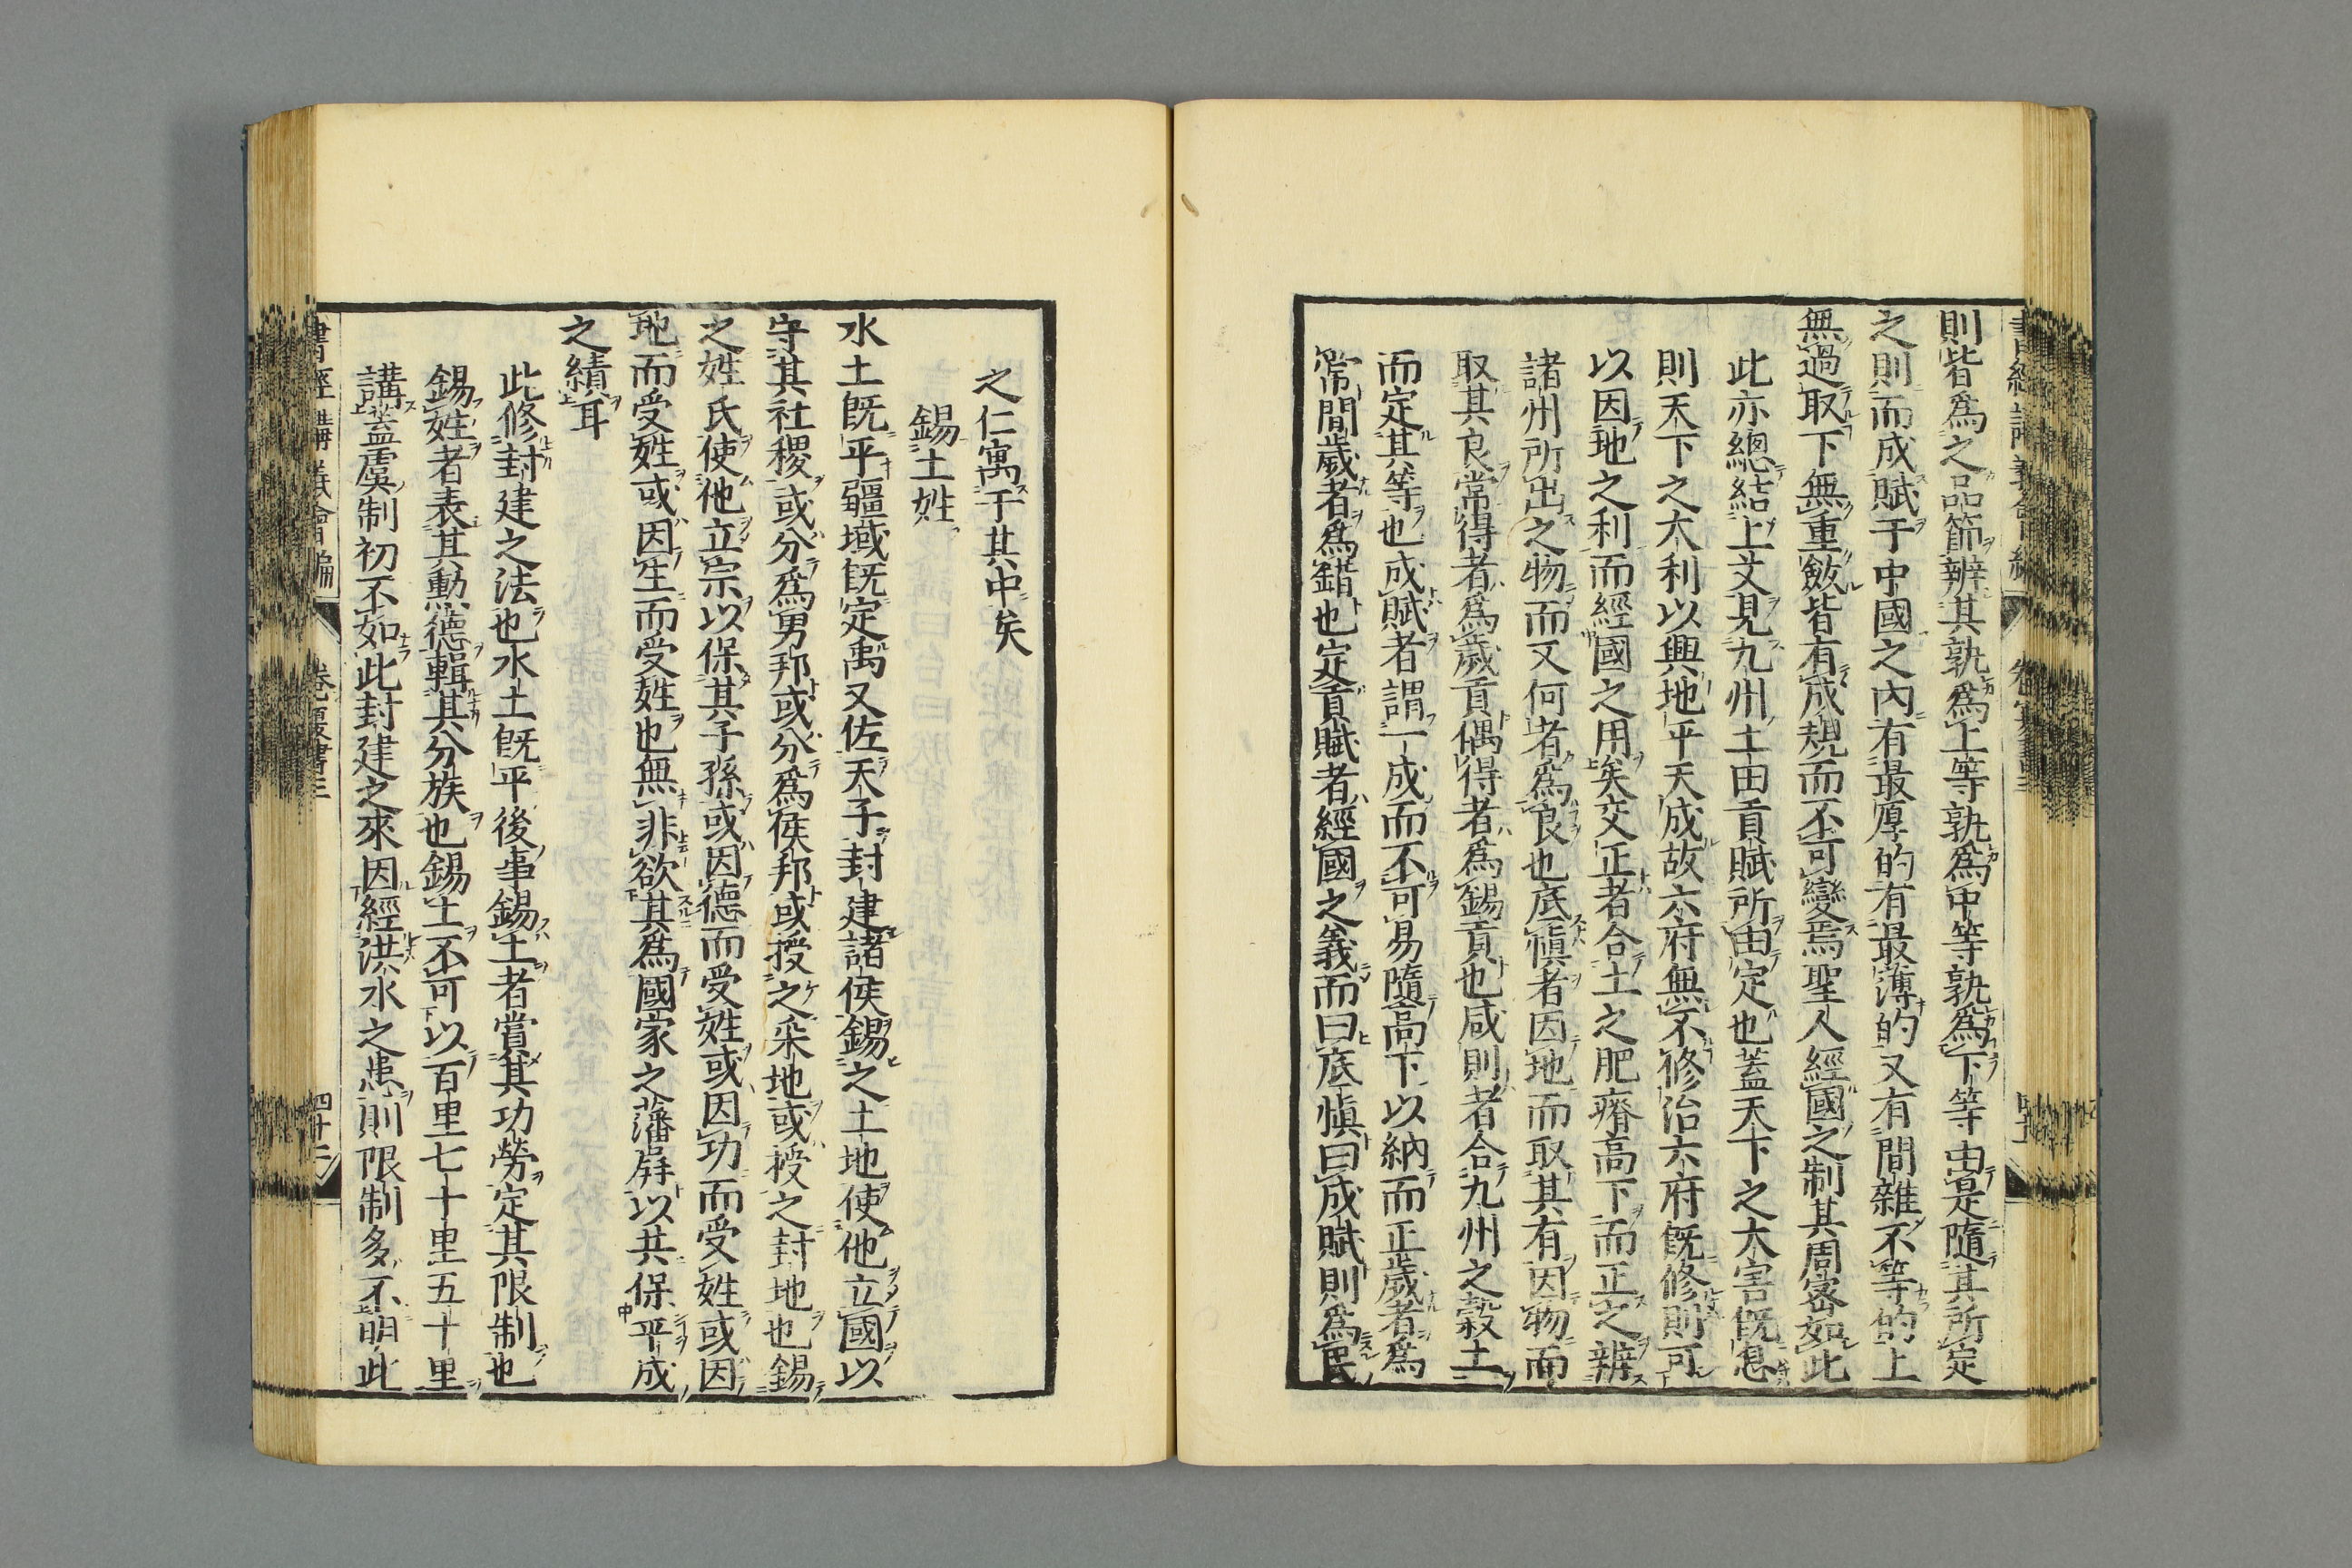 則皆爲之品節辨其孰爲上等孰爲中等孰爲下等由是隨其所定
之則而成賦于中國之内有最厚的有最薄的又有間雜不等的上
無過取下無重斂皆有成規而不可變焉聖人經國之制其周密如此
此亦總結上文見九州土田貢賦所由定也蓋天下之大害既息
則天下之大利以興地平天成故六府無不修治六府既修則可
以因地之利而經國之用矣交正者合土之肥瘠高下而正之辨
諸州所出之物而又何者爲良也底愼者因地而取其有因物而
取其良常得者爲歲貢偶得者爲錫貢也咸則者合九州之穀土
而定其等也成賦者謂一成而不可易隨高下以納而正歲者爲
常間歲者爲錯也定貢賦者經國之義而曰底愼曰成賦則爲民
之仁寓于其中矣
錫土姓
水土既平疆域既定禹又佐天子封建諸侯錫之土地使他立國以
守其社稷或分爲男邦或分爲侯邦或授之采地或授之封地也錫
之姓氏使他立宗以保其子孫或因德而受姓或因功而受姓或因
地而受姓或因生而受姓也無非欲其爲國家之藩屏以共保平成
之績耳
此修封建之法也水土既平後事錫土者賞其功勞定其限制也
錫姓者表其勳德輯其分族也錫土不可以百里七十里五十里
講蓋虞制初不如此封建之來因經洪水之患則限制多不明此
書經講義會編
卷二夏書三
四十二